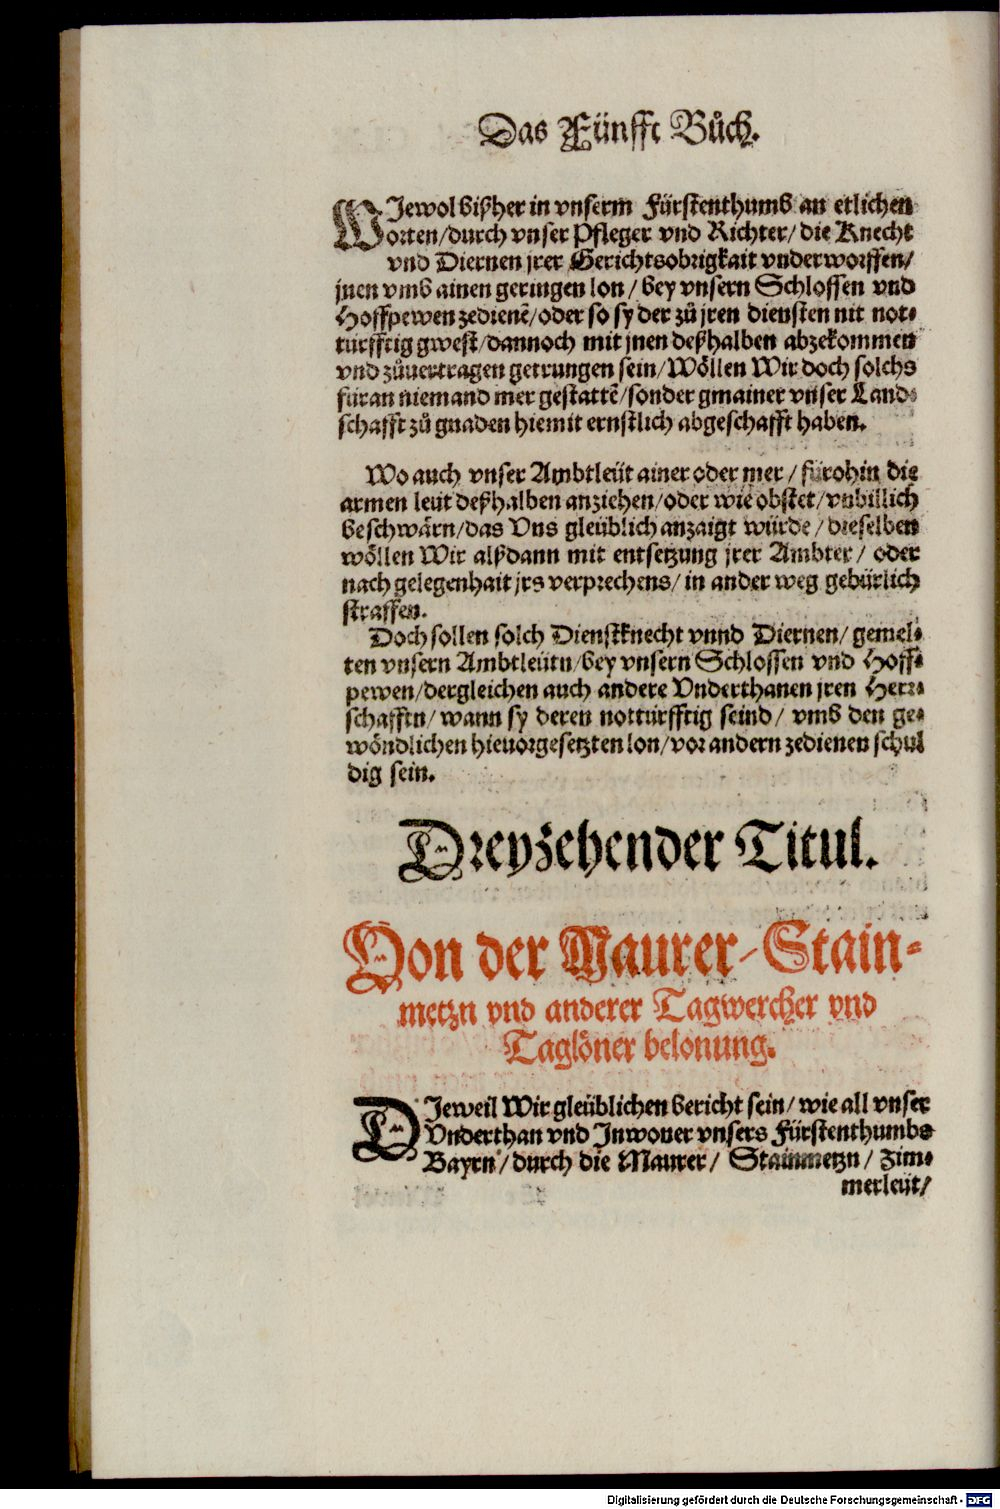 Das Fünfft Bůch.
WJewol bißher in vnserm Fürstenthumb an etlichen
orten/durch vnser Pfleger vnd Richter/ die Knecht
vnd Diernen jrer Gerichtsobrigkait vnderworffen/
jnen vmb ainen geringen lon / bey vnsern Schlossen vnd
Hoffpewen zedienē/oder so sy der zů jren diensten nit not⸗
turfftig gwest/dannoch mit jnen deßhalben abzekommen
vnd zůuertragen getrungen sein/Wöllen Wir doch solchs
füran niemand mer gestattē/sonder gmainer vnser Land⸗
schafft zů gnaden hiemit ernstlich abgeschafft haben.
Wo auch vnser Ambtleüt ainer oder mer / fürohin die
armen leut deßhalben anziehen/oder wie obstet/vnbillich
beschwärn/das Vns gleüblich anzaigt würde / dieselben
wöllen Wir alßdann mit entsetzung jrer Ambter/ oder
nach gelegenhait jrs verprechens/ in ander weg gebürlich
straffen.
Doch sollen solch Dienstknecht vnnd Diernen/ gemel⸗
ten vnsern Ambtleütn/bey vnsern Schlossen vnd Hoff⸗
pewen/dergleichen auch andere Vnderthanen jren Herr⸗
schafftn/ wann sy deren notturfftig seind/ vmb den ge⸗
wöndlichen hieuorgesetzten lon/vor andern zedienen schul
dig sein.
Dreyzehender Titul.
Von der Maurer/Stain⸗
metzn vnd anderer Tagwercher vnd
Taglöner belonung.
DJeweil Wir gleüblichen bericht sein/ wie all vnser
Vnderthan vnd Inwoner vnsers Fürstenthumbs
Bayrn / durch die Maurer/ Stainmetzn / Zim⸗
merleüt/
Digitalisierung gefördert durch die Deutsche Forschungsgemeinschaft - DFG